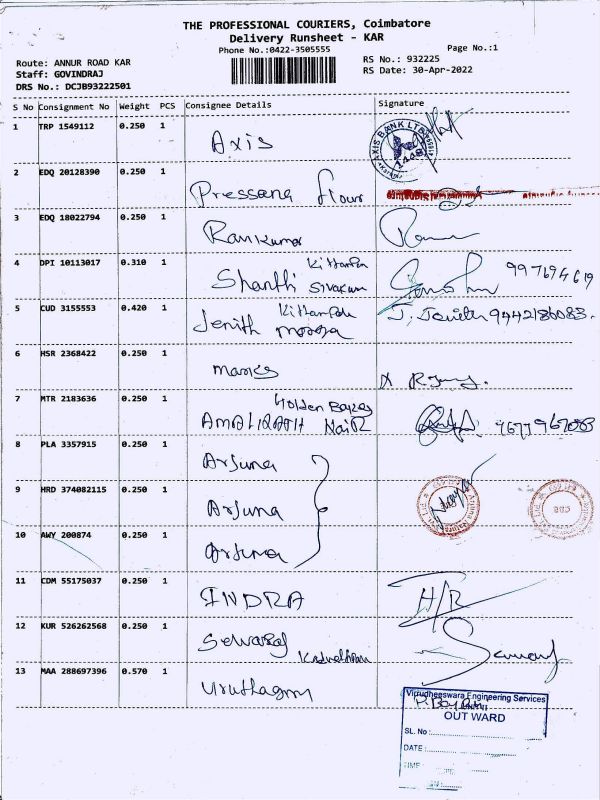 THE PROFESSIONAL COURIERS, Coimbatore
Delivery Runsheet - KAR
Phone No.:0422-3505555
Page No.:1
Route: ANNUR ROAD KAR
RS No.: 932225
Staff: GOVINDRAJ
RS Date: 30-Apr-2022
DRS No.: DCJB93222501
S No Consignment No Weight PCS Consignee Details Signature
1 TRP 1549112 0.250 1 Axis
AXIS BANK LTD
2 EDQ 20128390 0.250 1
Pressana flour
3 EDQ 18022794 0.250 1 Ramkumar
4 DPI 10113017 0.310 1
Shanthi Sivakumar
5 CUD 3155553 0.420 1
Jenith J. Jenith 9442186083.
6 HSR 2368422 0.250 1 Marks
7 MTR 2183636 0.250 1 Golden
Nair
8 PLA 3357915 0.250 1 Arjuna
9 HRD 374082115 0.250 1 Arjuna
10 AWY 200874 0.250 1 Arjuna
11 CDM 55175037 0.250 1 INDRA H/R
12 KUR 526262568 0.250 1 Selvaraj
13 MAA 288697396 0.570 1
Virudheeswara Engineering Services
OUT WARD
SL. No :
DATE :
TIME :